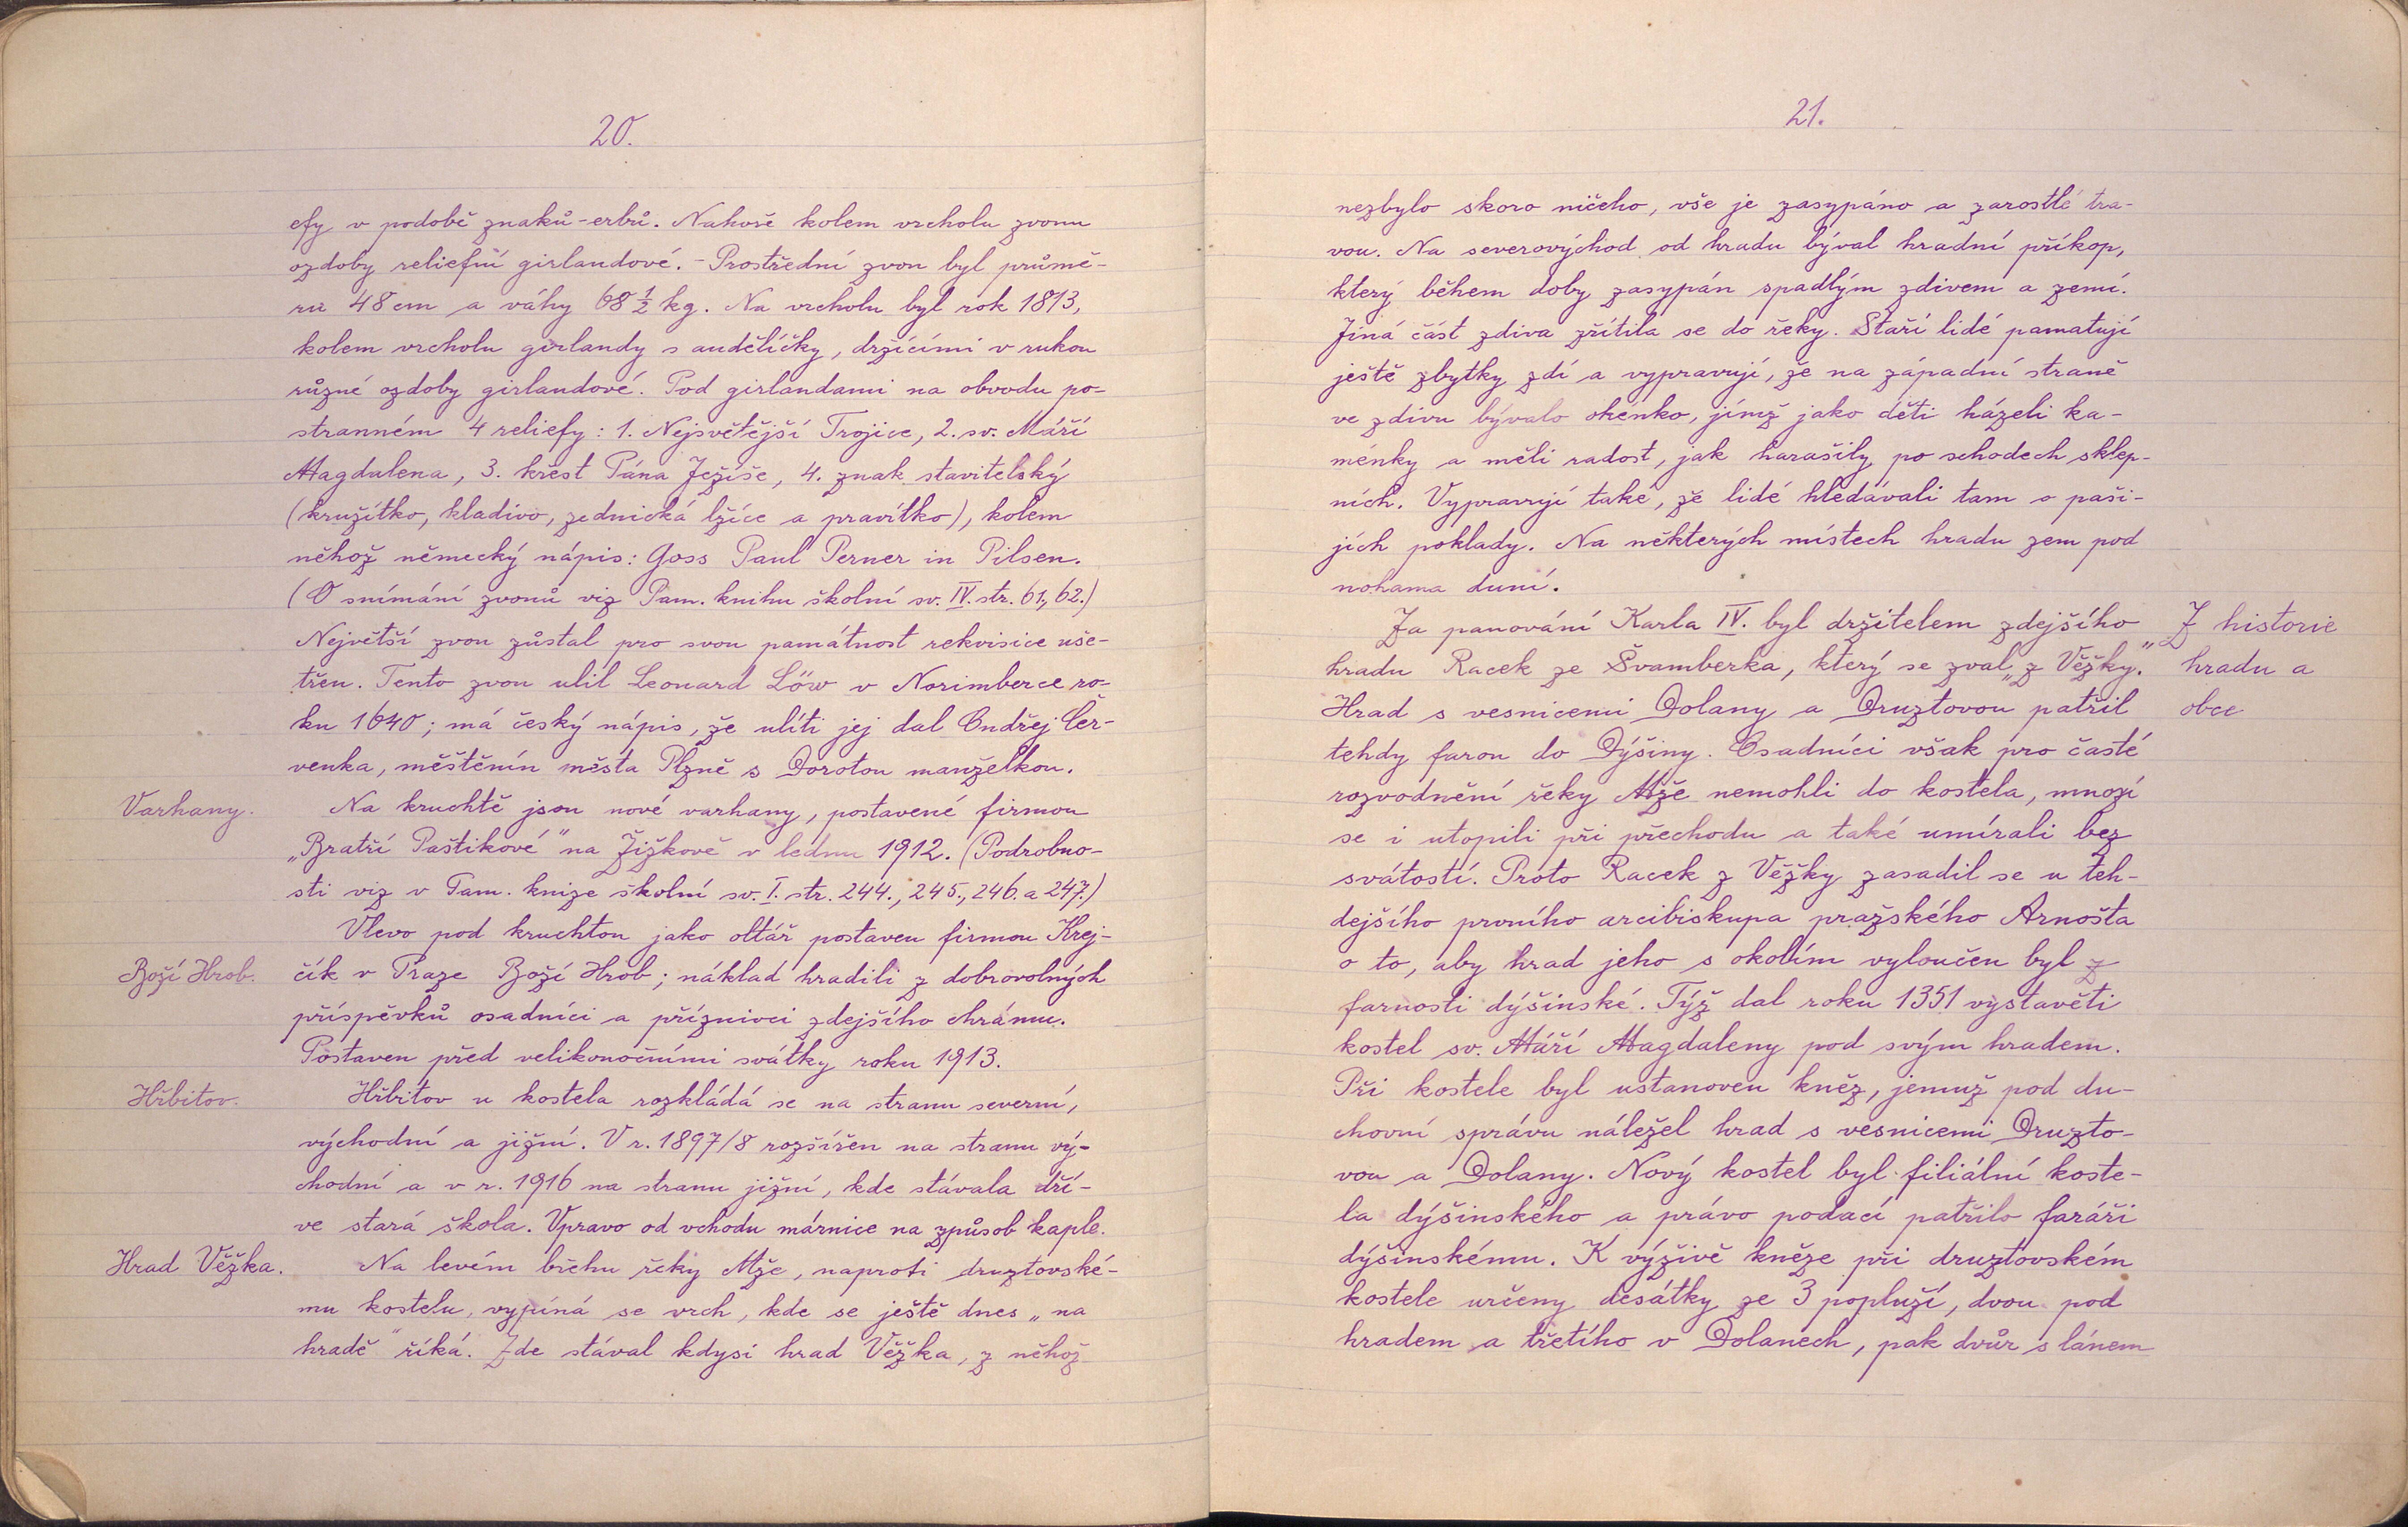 20.
efy v podobě znaků-erbů. Nahoře kolem vrcholu zvonu
ozdoby reliefní girlandové. - Prostřední zvon byl průmě-
ru 48 cm a váhy 68 1/2 kg. Na vrcholu byl rok 1813,
kolem vrcholu girlandy s andělíčky, držícími v rukou
různé ozdoby girlandové. Pod girlandami na obvodu po-
stranném 4 reliefy: 1. Nejsvětější Trojice, 2. sv. Máří
Magdalena, 3. křest Pána Ježíše, 4. znak stavitelský
(kružítko, kladivo, zednická lžíce a pravítko), kolem
něhož německý nápis: Goss Paul Perner in Pilsen.
(O snímání zvonů viz Pam. knihu školní sv. IV. str. 61., 62.)
Největší zvon zůstal pro svou památnost rekvisice uše-
třen. Tento zvon ulil Leonard Löw v Norimberce ro-
ku 1640; má český nápis, že ulíti jej dal Ondřej Čer-
venka, měštěnín města Plzně s Dorotou manželkou.
Varhany.
Na kruchtě jsou nové varhany, postavené firmou
„Bratří Paštikové" na Žižkově v lednu 1912. (Podrobno-
sti viz v Pam. knize školní sv. I. str. 244., 245., 246. a 247.)
Vlevo pod kruchtou jako oltář postaven firmou Krej-
Boží Hrob.
čík v Praze Boží Hrob; náklad hradili z dobrovolných
příspěvků osadníci a příznivci zdejšího chrámu.
Postaven před velikonočními svátky roku 1913.
Hřbitov.
Hřbitov u kostela rozkládá se na stranu severní,
východní a jižní. V r. 1897/8 rozšířen na stranu vý-
chodní a v r. 1916 na stranu jižní, kde stávala dří-
ve stará škola. Vpravo od vchodu márnice na způsob kaple.
Hrad Věžka.
Na levém břehu řeky Mže, naproti druztovské-
mu kostelu, vypíná se vrch, kde se ještě dnes „na
hradě" říká. Zde stával kdysi hrad Věžka, z něhož
21.
nezbylo skoro ničeho, vše je zasypáno a zarostlé tra-
vou. Na severovýchod od hradu býval hradní příkop,
který během doby zasypán spadlým zdivem a zemí.
Jiná část zdiva zřítila se do řeky. Staří lidé pamatují
ještě zbytky zdí a vypravují, že na západní straně
ve zdivu bývalo okénko, jímž jako děti házeli ka-
ménky a měli radost, jak harašily po schodech sklep-
ních. Vypravují také, že lidé hledávali tam o paši-
jích poklady. Na některých místech hradu zem pod
nohama duní.
Za panování Karla IV. byl držitelem zdejšího
Z historie
hradu Racek ze Švamberka, který se zval „z Věžky."
hradu a
Hrad s vesnicemi Dolany a Druztovou patřil
obce
tehdy farou do Dýšiny. Osadníci však pro časté
rozvodnění řeky Mže nemohli do kostela, mnozí
se i utopili při přechodu a také umírali bez
svátostí. Proto Racek z Věžky zasadil se u teh-
dejšího prvního arcibiskupa pražského Arnošta
o to, aby hrad jeho s okolím vyloučen byl z
farnosti dýšinské. Týž dal roku 1351 vystavěti
kostel sv. Máří Magdaleny pod svým hradem.
Při kostele byl ustanoven kněz, jemuž pod du-
chovní správu náležel hrad s vesnicemi Druzto-
vou a Dolany. Nový kostel byl filiální koste-
la dýšinského a právo podací patřilo faráři
dýšinskému. K výživě kněze při druztovském
kostele určeny desátky ze 3 popluží, dvou pod
hradem a třetího v Dolanech, pak dvůr s lánem